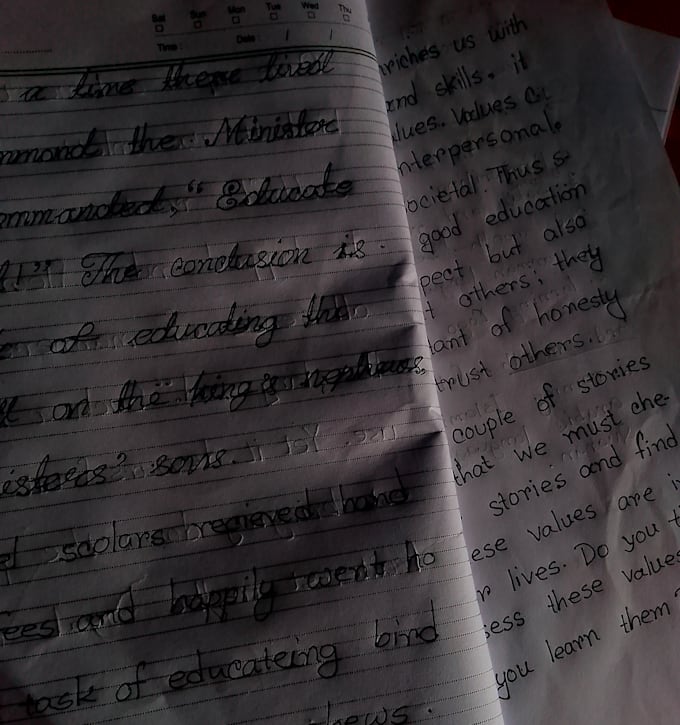 Sat Sun Mon Tue Wed Thu
Time : Date : / /
a time there lived
mmond the Minister
ommanded, " Educate
!" The conclusion is
of educating the
on the king's nephews,
isteras' sons.
scolars recieved hand
ees and happily went ho
task of educateing bird
hews.
riches us with
nd skills. it
lues. Values
nterpersonal
ocietal. Thus
good education
pect but also
t others; they
tant of honesty
trust others.
couple of stories
that we must che-
stories and find
ese values are i
r lives. Do you t
sess these values
you learn them?